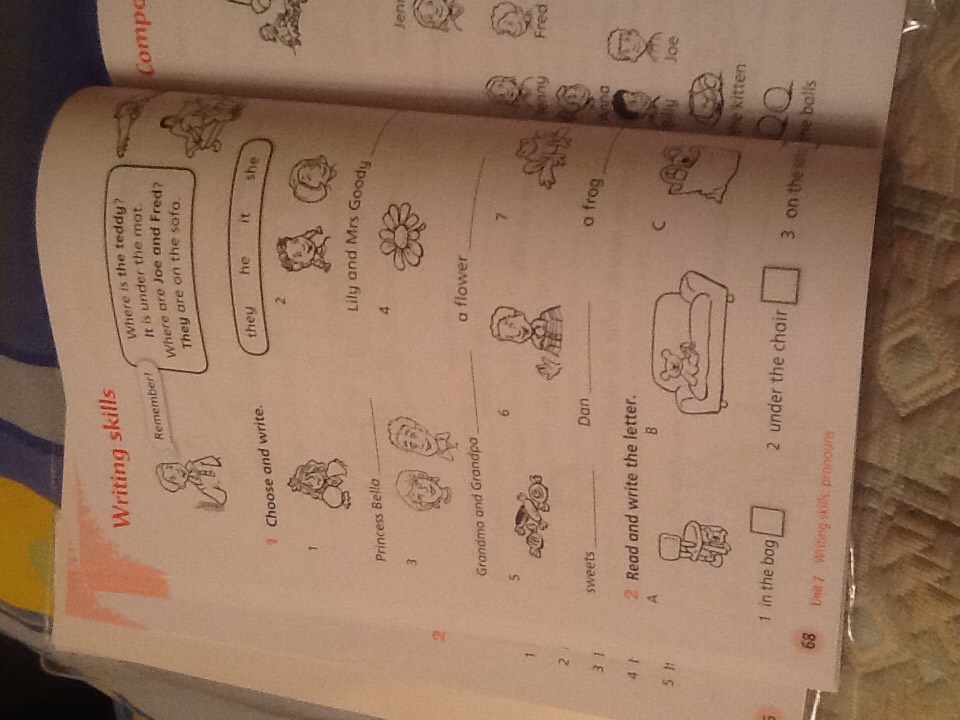 Writing skills
Remember!
Where is the teddy?
It is under the mat.
Where are Joe and Fred?
They are on the sofa.
1 Choose and write.
they he it she
1
2
Princess Bella
Lily and Mrs Goody
3
4
Grandma and Grandpa
a flower
5
6
7
sweets
Dan
a frog
2 Read and write the letter.
A
B
C
1 in the bag
2 under the chair
3 on the
68 Unit 7 Writing skills, pronouns
2
1
2
3
4
5
Compo
Jenn
Fred
Joe
kitten
balls